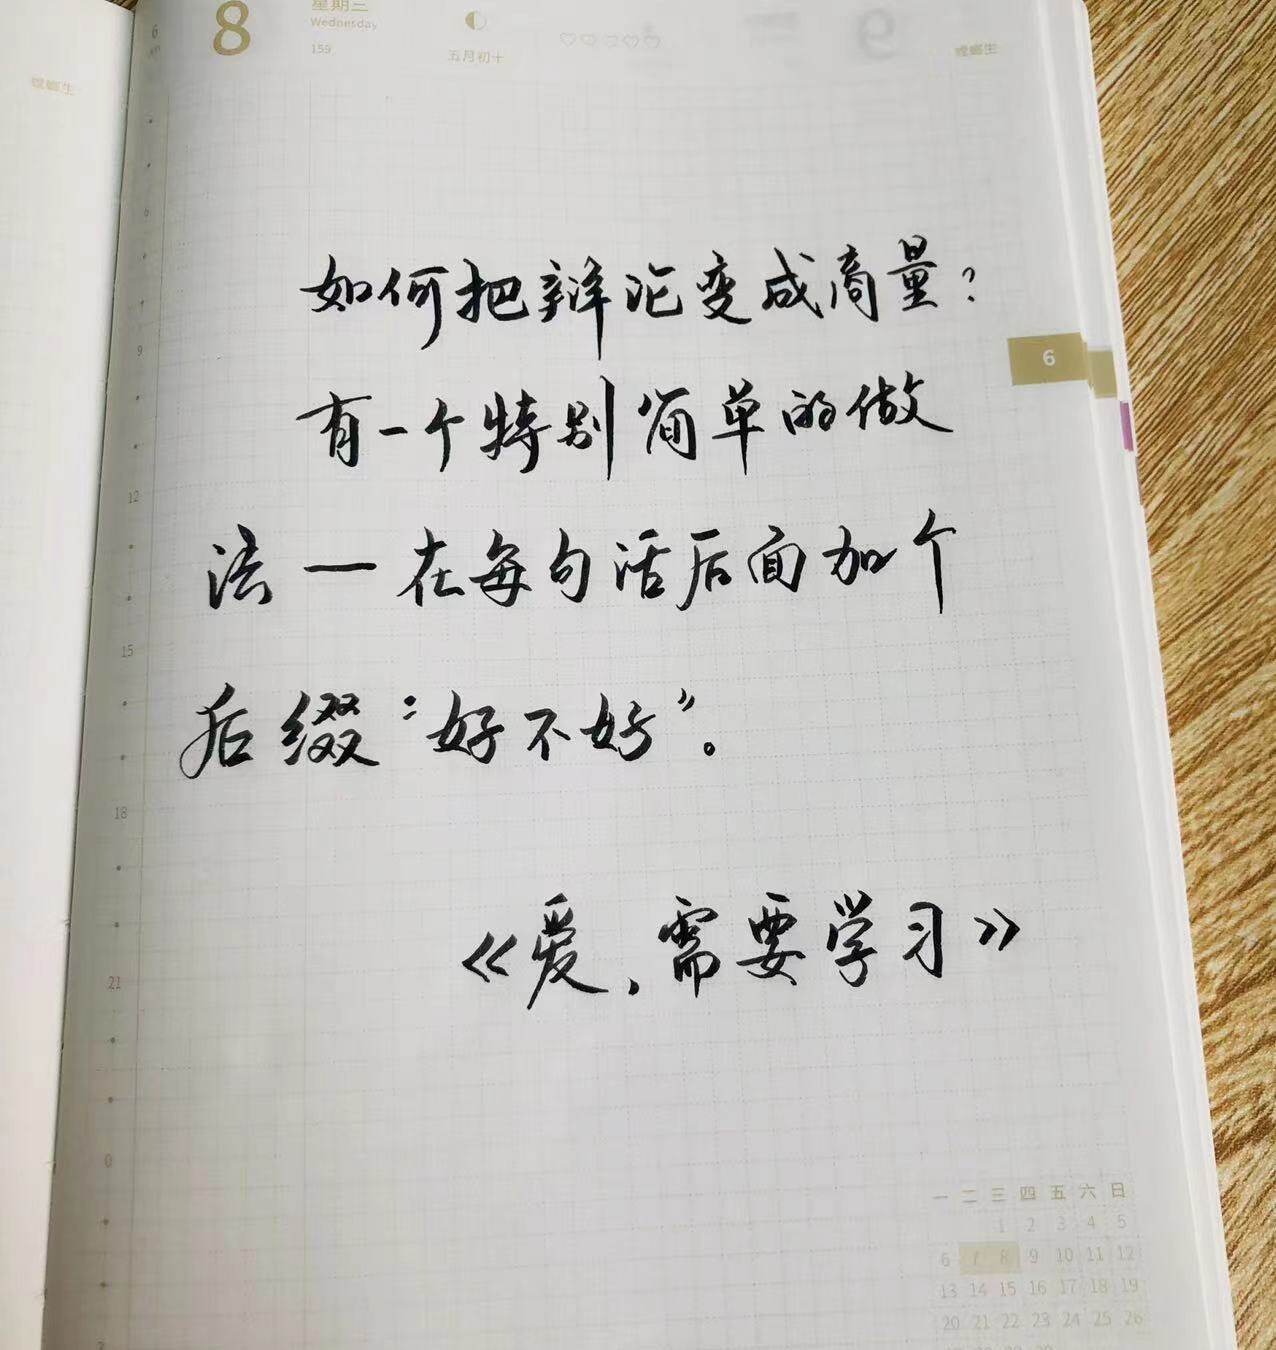 螳螂生
6
8
星期三
Wednesday
159
五月初十
螳螂生
如何把辩论变成商量？
6
9
有一个特别简单的做
12
法一在每句话后面加个
15
后缀“好不好”。
18
《爱，需要学习》
21
0
一 二 三 四 五 六 日
1 2 3 4 5
6 7 8 9 10 11 12
13 14 15 16 17 18 19
20 21 22 23 24 25 26